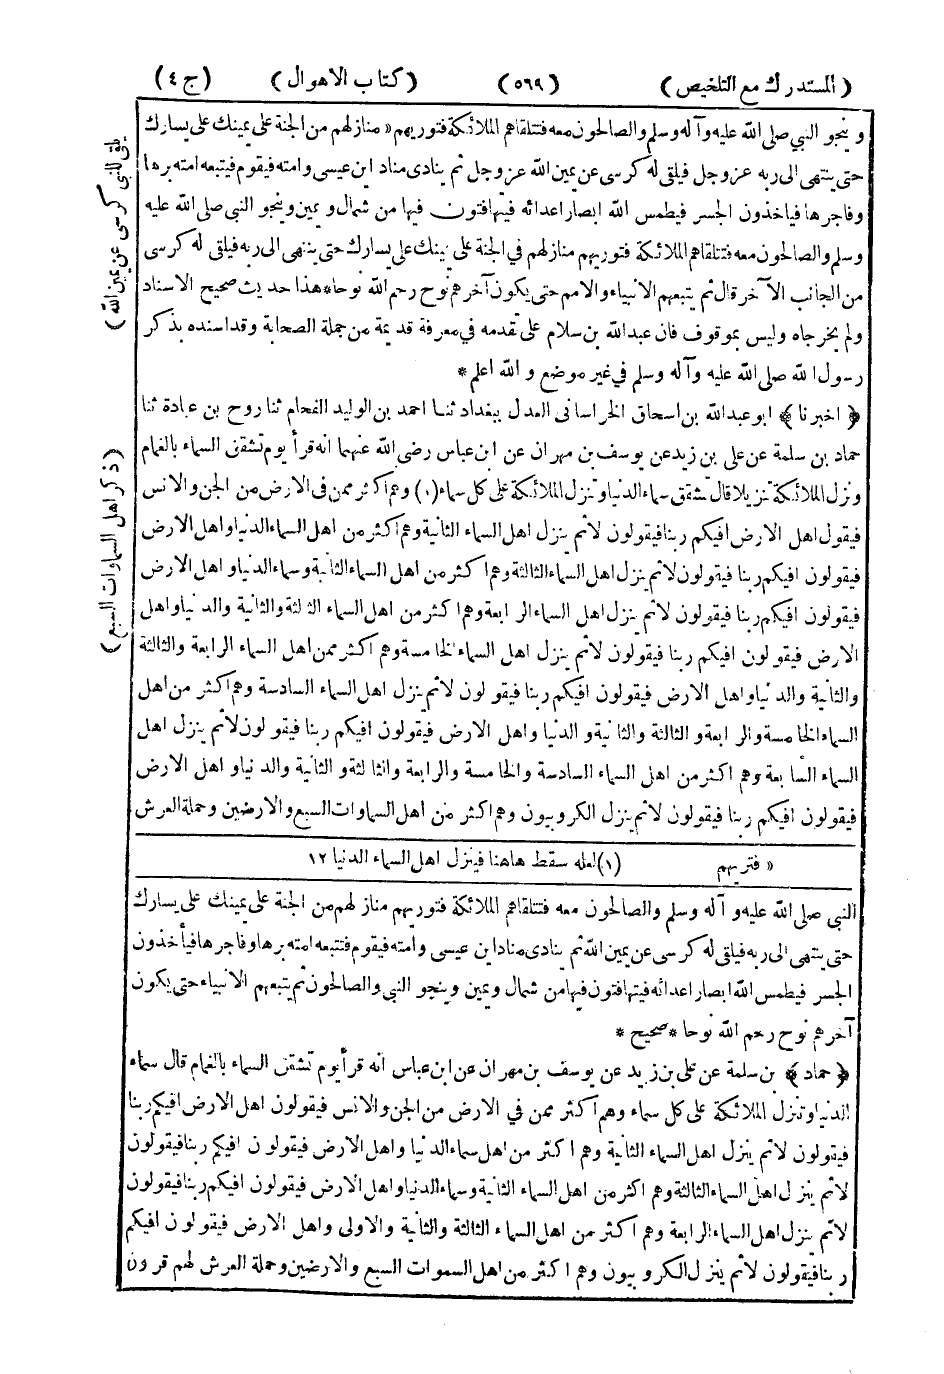 ( المستدرك مع التلخيص )
( ٥٦٩ )
( كتاب الاهوال )
( ج ٤ )
وينجو النبي صلى الله عليه وآله وسلم والصالحون معه فتتلقاهم الملائكة فتوريهم « منازلهم من الجنة على يمينك على يسارك
حتى ينتهى الى ربه عز وجل فيلقى له كرسى عن يمين الله عز وجل ثم ينادى مناد اين عيسى وامته فيقوم فيتبعه امته برها
وفاجرها فياخذون الجسر فيطمس الله ابصار اعدائه فيتهافتون فيها من شمال و يمين وينجو النبي صلى الله عليه
وسلم والصالحون معه فتتلقاهم الملائكة فتوريهم منازلهم في الجنة على يمينك على يسارك حتى ينتهى الى ربه فيلقى له كرسى
من الجانب الآخر قال ثم يتبعهم الانبياء والامم حتى يكون آخرهم نوح رحم الله نوحا * هذا حديث صحيح الاسناد
ولم يخرجاه وليس بموقوف فان عبدالله بن سلام على تقدمه في معرفة قديمة من جملة الصحابة وقد اسنده بذكر
رسول الله صلى الله عليه وآله وسلم في غير موضع و الله اعلم *
﴿ اخبرنا ﴾ ابو عبدالله بن اسحاق الخراسانى العدل ببغداد ثنا احمد بن الوليد الفحام ثنا روح بن عبادة ثنا
حماد بن سلمة عن على بن زيد عن يوسف بن مهران عن ابن عباس رضى الله عنهما انه قرأ يوم تشقق السماء بالغمام
ونزل الملائكة تنزيلا قال تشقق سماء الدنيا وتنزل الملائكة على كل سماء (١) وهم اكثر ممن فى الارض من الجن والانس
فيقول اهل الارض افيكم ربنا فيقولون لا ثم ينزل اهل السماء الثانية وهم اكثر من اهل السماء الدنيا واهل الارض
فيقولون افيكم ربنا فيقولون لا ثم ينزل اهل السماء الثالثة وهم اكثر من اهل السماء الثانية وسماء الدنيا واهل الارض
فيقولون افيكم ربنا فيقولون لا ثم ينزل اهل السماء الرابعة وهم اكثر من اهل السماء الثالثة والثانية والدنيا واهل
الارض فيقولون افيكم ربنا فيقولون لا ثم ينزل اهل السماء الخامسة وهم اكثر ممن اهل السماء الرابعة والثالثة
والثانية والدنيا واهل الارض فيقولون افيكم ربنا فيقولون لا ثم ينزل اهل السماء السادسة وهم اكثر من اهل
السماء الخامسة والرابعة والثالثة والثانية والدنيا واهل الارض فيقولون افيكم ربنا فيقولون لا ثم ينزل اهل
السماء السابعة وهم اكثر من اهل السماء السادسة والخامسة والرابعة والثالثة والثانية والدنيا واهل الارض
فيقولون افيكم ربنا فيقولون لا ثم ينزل الكروبيون وهم اكثر من اهل السماوات السبع والارضين وحملة العرش
« فتريهم
(١) لعله سقط هاهنا فينزل اهل السماء الدنيا ١٢
النبي صلى الله عليه و آله وسلم والصالحون معه فتتلقاهم الملائكة فتوريهم منازلهم من الجنة على يمينك على يسارك
حتى ينتهى الى ربه فيلقى له كرسى عن يمين الله ثم ينادى مناد اين عيسى وامته فيقوم فتتبعه امته برها وفاجرها فيأخذون
الجسر فيطمس الله ابصار اعدائه فيتهافتون فيها من شمال ويمين وينجو النبي والصالحون ثم يتبعهم الانبياء حتى يكون
آخرهم نوح رحم الله نوحا * صحيح *
﴿ حماد ﴾ بن سلمة عن على بن زيد عن يوسف بن مهران عن ابن عباس انه قرأ يوم تشقق السماء بالغمام قال سماء
الدنيا وتنزل الملائكة على كل سماء وهم اكثر ممن في الارض من الجن والانس فيقولون اهل الارض افيكم ربنا
فيقولون لا ثم ينزل اهل السماء الثانية وهم اكثر من اهل سماء الدنيا واهل الارض فيقولون افيكم ربنا فيقولون
لا ثم ينزل اهل السماء الثالثة وهم اكثر من اهل السماء الثانية وسماء الدنيا واهل الارض فيقولون افيكم ربنا فيقولون
لا ثم ينزل اهل السماء الرابعة وهم اكثر من اهل السماء الثالثة والثانية والاولى واهل الارض فيقولون افيكم
ربنا فيقولون لا ثم ينزل الكروبيون وهم اكثر من اهل السموات السبع والارضين وحملة العرش لهم قرون
يلقى للنبى كرسى عن يمين الله )
( ذكر اهل السماوات السبع )